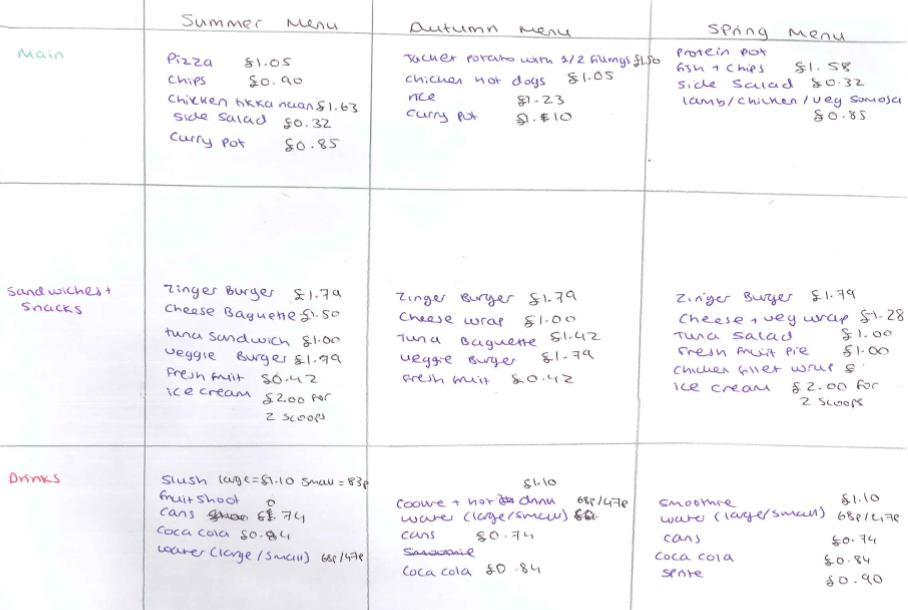 Summer Menu
Autumn Menu
Spring Menu
Main
Pizza £1.05
Chips £0.90
Chicken tikka naan £1.63
side salad £0.32
Curry pot £0.85
Jacket potato with 1/2 fillings £1.50
Chicken hot dogs £1.05
rice £1.23
Curry pot £1.10
Protein pot
fish + chips £1.58
side salad £0.32
lamb/chicken/veg samosa
£0.85
Sandwiches +
Snacks
Zinger Burger £1.79
Cheese Baguette £1.50
tuna sandwich £1.00
veggie Burger £1.79
Fresh fruit £0.42
ice cream £2.00 for
2 scoops
Zinger Burger £1.79
Cheese wrap £1.00
Tuna Baguette £1.42
veggie Burger £1.79
Fresh fruit £0.42
Zinger Burger £1.79
Cheese + veg wrap £1.28
Tuna Salad £1.00
Fresh fruit pie £1.00
chicken fillet wrap £
ice cream £2.00 for
2 scoops
Drinks
Slush large = £1.10 small = 83p
fruit shoot
cans £0.74
coca cola £0.84
water (large/small) 68p/47p
£1.10
+ hot 68p/47p
water (large/small)
cans £0.74
Smoothie
coca cola £0.84
smoothie £1.10
water (large/small) 68p/47p
cans £0.74
coca cola £0.84
sprite £0.90